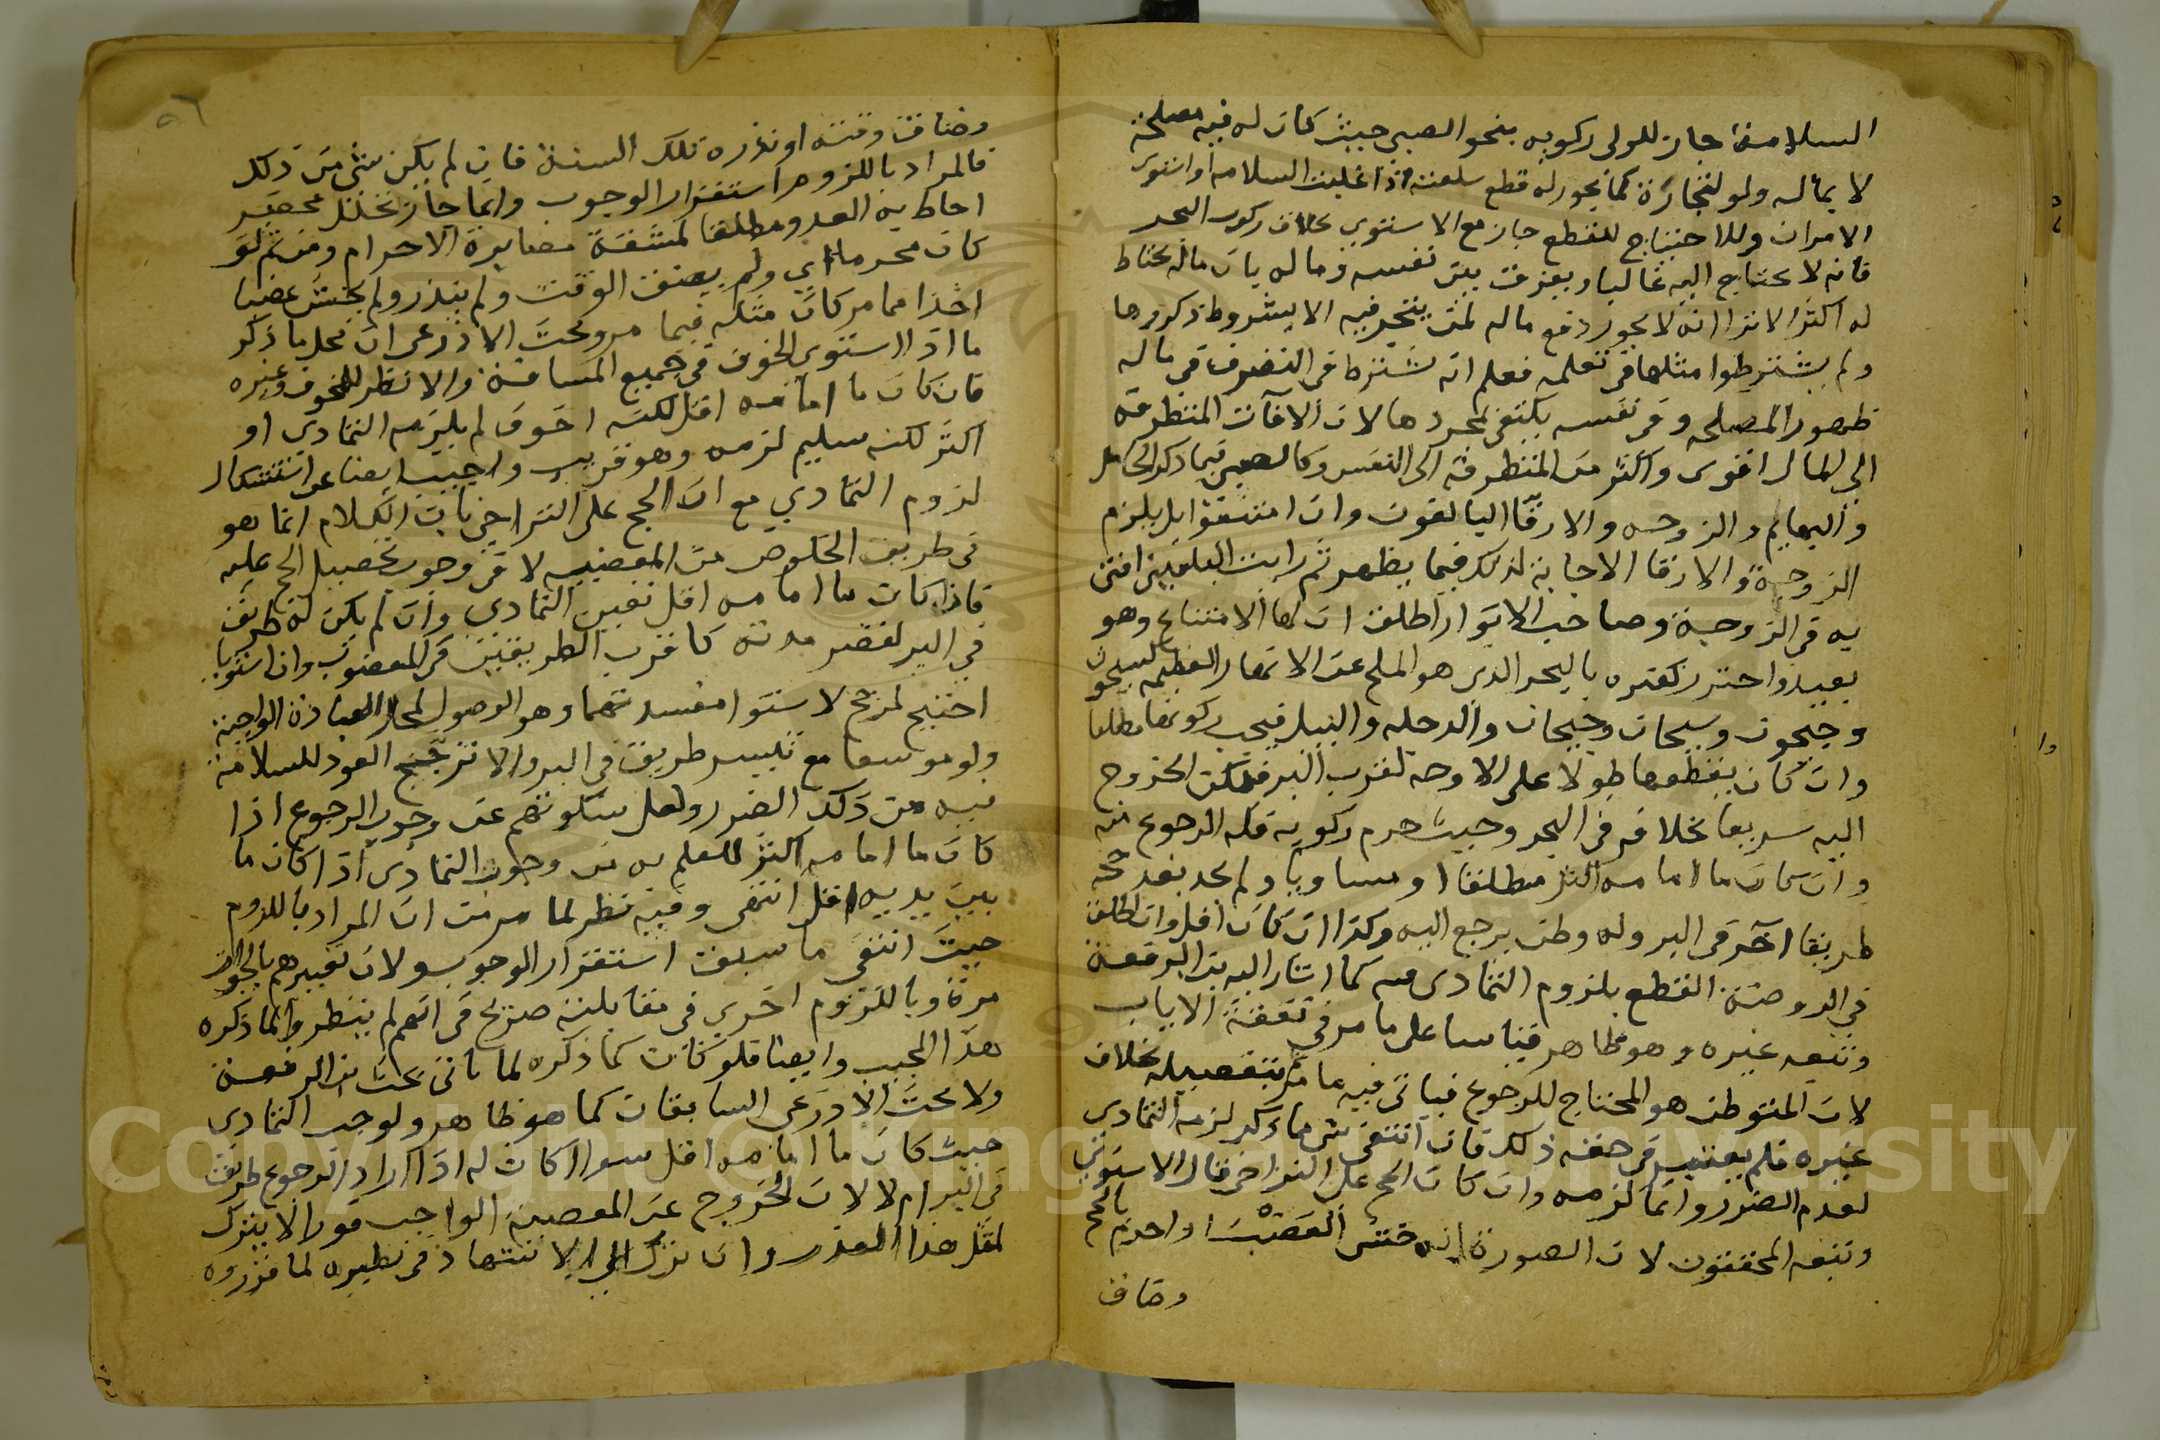 السلامة جاز للولى ركوبه بنحو الصبى حيث كان له فيه مصلحة
لا بماله ولو لتجارة كما يجوز له قطع سلعته اذا غلبت السلامة او استوى
الامران وللاحتياج للقطع جاز مع الاستوى بخلاف ركوب البحر
فانه لا يحتاج اليه غالبا ويفرق بين نفسه وماله بان ماله يحتاط
له اكثر الا ترا انه لا يجوز دفع ماله لمن يتجر فيه الا بشروط ذكروها
ولم يشترطوا مثلها فى تعلمه فعلم انه شترط فى التصرف فى ماله
ظهور المصلحه وفى نفسه يكتفى بمجردها لان الآفات المتطرقه
الى المال اقوى واكثر من المتطرقة الى النفس وكالصبى فيما ذكر الحامل
والبهايم والزوجه والارقا البالغون وان امتنعوا بل يلزم
الزوجة والارقا الاجابة لذلك فيما يظهر ثم رايت البلقينى افتى
به فى الزوجة وصاحب الانوار اطلق ان لها الامتناع وهو
بعيد واحترز كغيره بالبحر الذى هو الملح عن الانهار العظيمه كسيحون
وجيحون وسيحان وجيحان والدجله والنيل فيجب ركوبها مطلقا
وان كان يقطعها طولا على الاوجه لقرب البر فيمكن الخروج
اليه سريعا بخلافه فى البحر وحيث حرم ركوبه فله الرجوع منه
وان كان ما امامه اكثر مطلقا او مساويا ولم يجد بعد حجه
طريقا آخر فى البر وله وطن يرجع اليه وكذا ان كان اقل وان اطلق
فى الروضة القطع بلزوم التمادى منه كما اشار اليه بن الرفعة
وتبعه غيره وهو ظاهر قياسا على ما مر فى نفقة الاياب
لان المتوطن هو المحتاج للرجوع فياتى فيه ما مر بتفصيله بخلاف
غيره فلم يعتبر فى حقه ذلك فان انتفى شى ما ذكر لزمه التمادى
لعدم الضرر وانما لزمه وان كان الحج على التراخى قال الاسنوى
وتبعه المحققون لان الصورة انه خشى العضب او احرم بالحج
وضاق
وضاق وقته او نذره تلك السنة فان لم يكن شى من ذلك
فالمراد باللزوم استقرار الوجوب وانما جاز تحلل محصر
احاط به العدو مطلقا لمشقة مصابرة الاحرام ومن ثم لو
كان محرما اى ولم يضق الوقت ولم ينذر ولم يخش عضبا
اخذا مما مر كان مثله فيما مر وبحث الاذرعى ان محل ما ذكر
ما اذا استوى الخوف فى جميع المسافة والا نظر للخوف وغيره
فان كان ما امامه اقل لكنه اخوف لم يلزمه التمادى او
اكثر لكنه سليم لزمه وهو قريب واجيب ايضا عن استشكال
لزوم التمادي مع ان الحج على التراخى بان الكلام انما هو
فى طريق الخلوص من المعصيه لا فى وجوب تحصيل الحج عليه
فاذا كان ما امامه اقل تعين التمادى وان لم يكن له طريق
فى البر لقصر مدته كاقرب الطريقين فى المغصوب وان استويا
احتيج لمرجح لاستوا مفسدتهما وهو الوصول لمحل العبادة الواجبة
ولو موسعا مع تيسر طريق فى البر والا ترجح العود للسلامة
فيه من ذلك الضرر ولعل سكوتهم عن وجوب الرجوع اذا
كان ما امامه اكثر للعلم به من وجوب التمادى اذا كان ما
بين يديه اقل انتهى وفيه نظر لما مر من ان المراد باللزوم
حيث انتفى ما سبق استقرار الوجوب ولان تعبيرهم بالجواز
مرة وباللزوم اخرى فى مقابلته صريح فى انهم لم ينظروا لما ذكره
هذا المجيب وايضا فلو كان كما ذكره لما تاتى بحث بن الرفعة
ولا بحث الاذرعى السابقان كما هو ظاهر ولوجب التمادى
حيث كان ما امامه اقل سوا كان له اذا اراد الرجوع طريق
فى البر ام لا لان الخروج عن المعصية الواجب فورا لا يترك
لمثل هذا العذر وان ترك الى الانتها فى نظيره لما قرروه